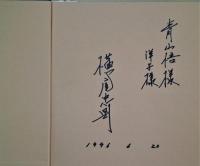 青山悟様
洋子様
横尾忠則
1996 6 20